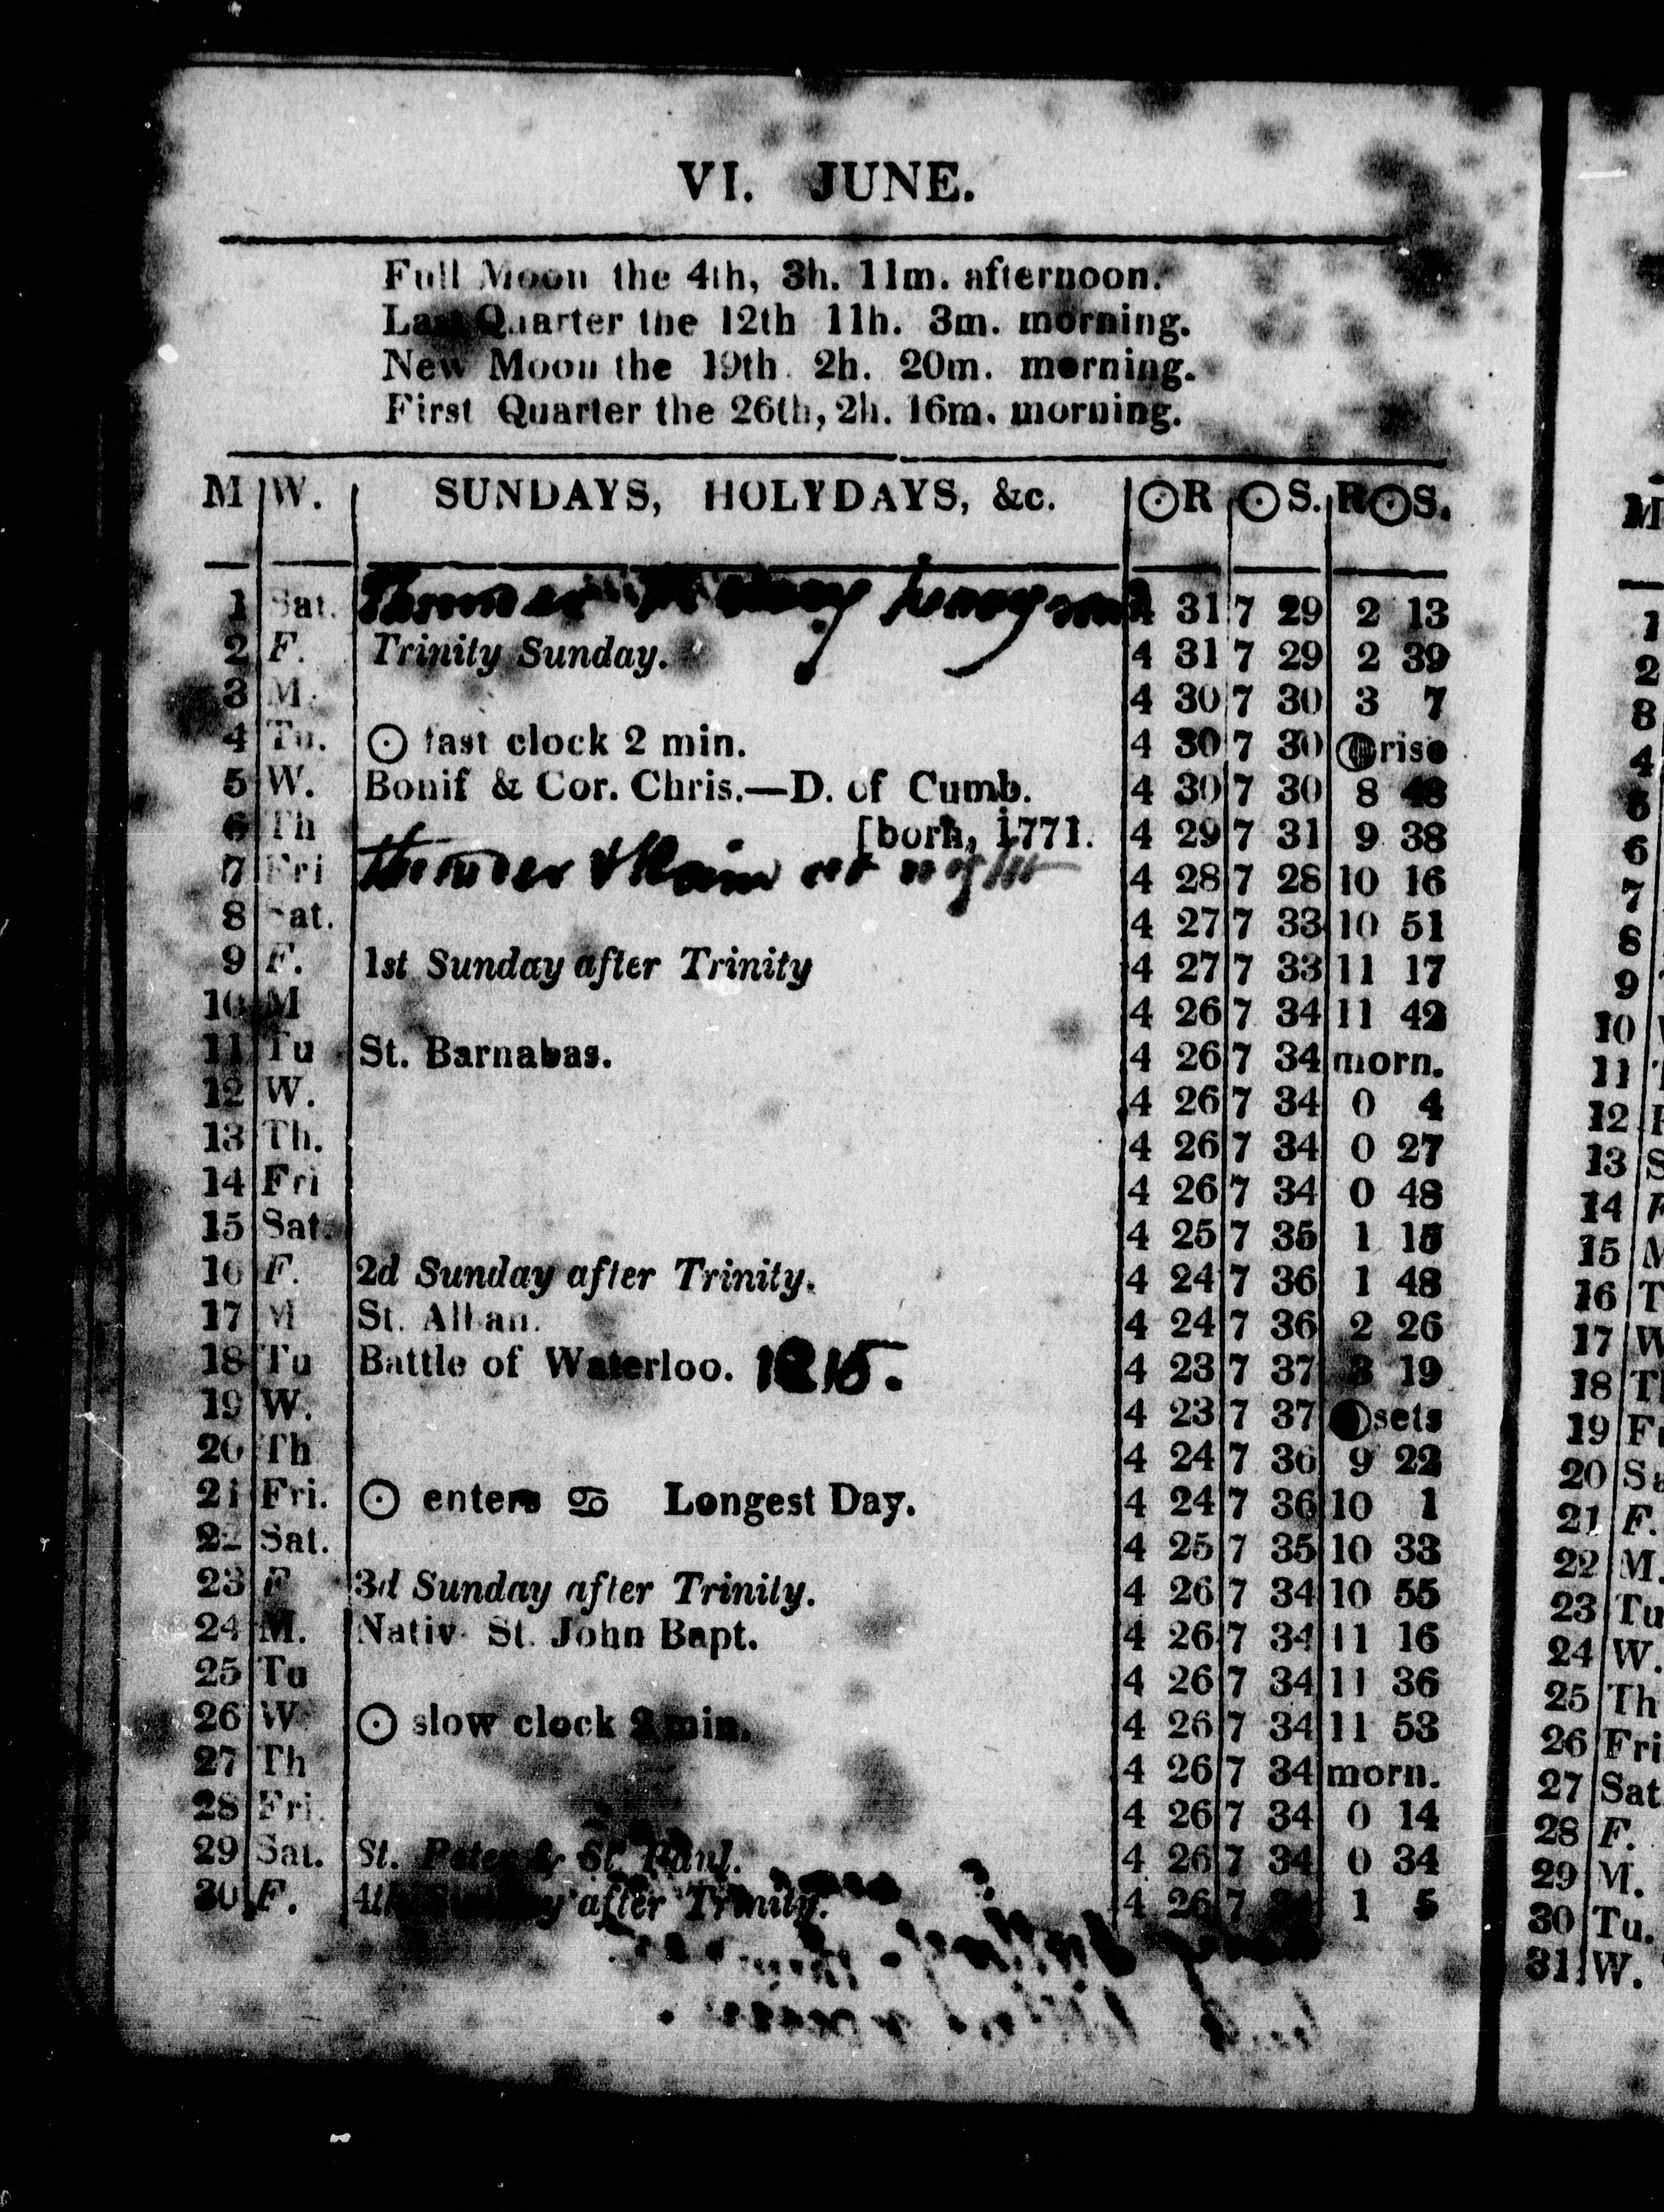 VI. JUNE.
Full Moon the 4th, 3h. 11m. afternoon.
Last Quarter the 12th 11h. 3m. morning.
New Moon the 19th. 2h. 20m. morning.
First Quarter the 26th, 2h. 16m. morning.
M W. SUNDAYS, HOLYDAYS, &c. ☉R ☉S. R☉S.
1 Sat. Thunder heavy 4 31 7 29 2 13
2 F. Trinity Sunday. 4 31 7 29 2 39
3 M. 4 30 7 30 3 7
4 Tu. ☉ fast clock 2 min. 4 30 7 30 rise
5 W. Bonif & Cor. Chris.—D. of Cumb. 4 30 7 30 8 48
6 Th [born, 1771. 4 29 7 31 9 38
7 Fri thunder & Rain at night 4 28 7 28 10 16
8 Sat. 4 27 7 33 10 51
9 F. 1st Sunday after Trinity 4 27 7 33 11 17
10 M 4 26 7 34 11 42
11 Tu St. Barnabas. 4 26 7 34 morn.
12 W. 4 26 7 34 0 4
13 Th. 4 26 7 34 0 27
14 Fri 4 26 7 34 0 48
15 Sat. 4 25 7 35 1 15
16 F. 2d Sunday after Trinity. 4 24 7 36 1 48
17 M St. Alban. 4 24 7 36 2 26
18 Tu Battle of Waterloo. 1815. 4 23 7 37 3 19
19 W. 4 23 7 37 sets
20 Th 4 24 7 36 9 22
21 Fri. ☉ enters ♋ Longest Day. 4 24 7 36 10 1
22 Sat. 4 25 7 35 10 33
23 F 3d Sunday after Trinity. 4 26 7 34 10 55
24 M. Nativ. St. John Bapt. 4 26 7 34 11 16
25 Tu 4 26 7 34 11 36
26 W ☉ slow clock 2 min. 4 26 7 34 11 53
27 Th 4 26 7 34 morn.
28 Fri. 4 26 7 34 0 14
29 Sat. St. Peter & St. Paul. 4 26 7 34 0 34
30 F. 4th Sunday after Trinity. 4 26 7 1 5
M
1
2
3
4
5
6
7
8
9
10
11
12
13
14 F
15 M
16 T
17 W
18 Th
19 Fr
20 Sa
21 F.
22 M.
23 Tu
24 W.
25 Th
26 Fri
27 Sat
28 F.
29 M.
30 Tu.
31 W.